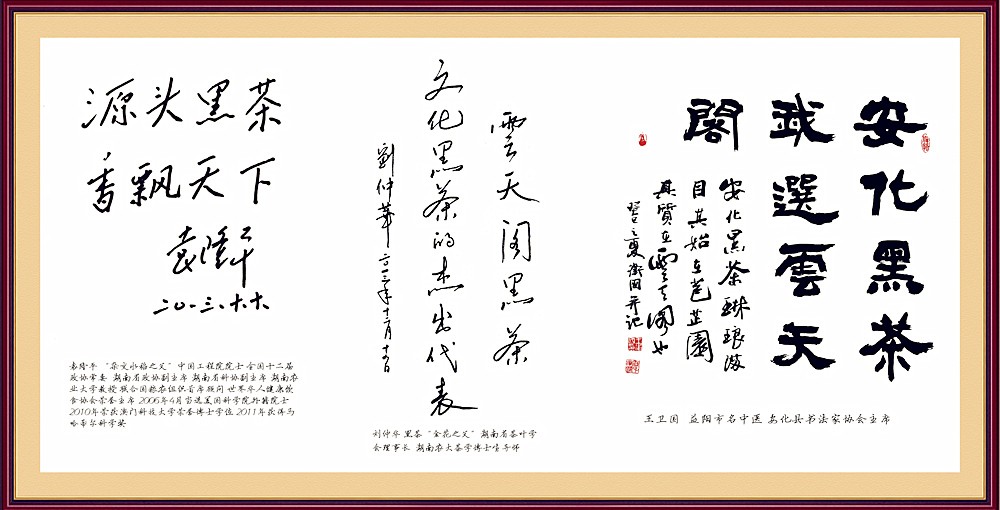 源头黑茶
香飘天下
袁隆平
二〇一三、十、十
袁隆平 “杂交水稻之父” 中国工程院院士 全国十二届
政协常委 湖南省政协副主席 湖南省科协副主席 湖南农
业大学教授 联合国粮农组织首席顾问 世界华人健康饮
食协会荣誉主席 2006年4月当选美国科学院外籍院士
2010年荣获澳门科技大学荣誉博士学位 2011年获得马
哈蒂尔科学奖
雲天阁黑茶
文化黑茶的杰出代
表
劉仲華 二〇一三年十二月十二日
刘仲华 黑茶“金花之父” 湖南省茶叶学
会理事长 湖南农大茶学博士生导师
安化黑茶
我選雲天
閣
安化黑茶琳琅满
目其始在芭芷園
真質在雲天阁也
之夏衛国并记
王卫国 益阳市名中医 安化县书法家协会主席